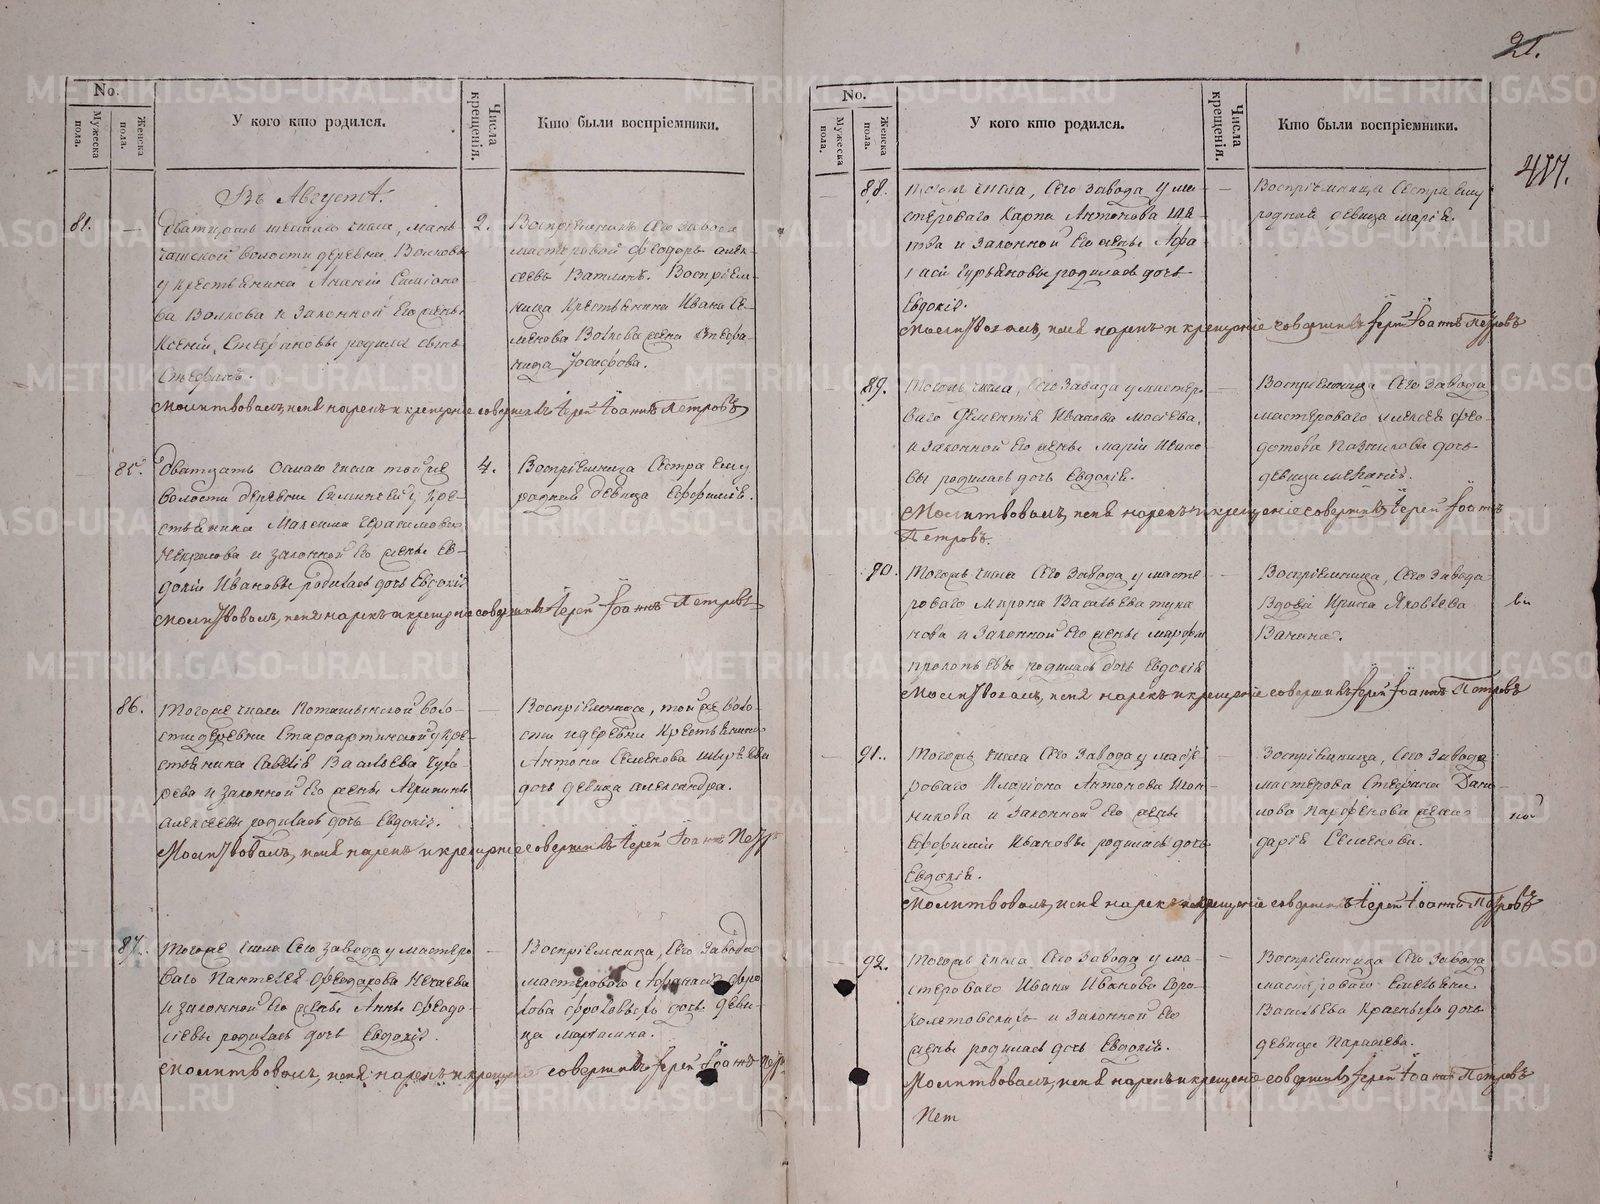 21.
417.
No.
Мужеска пола.
Женска пола.
У кого кто родился.
Числа крещенія.
Кто были воспріемники.
Въ Августѣ.
81.
—
2.
Дватцать шестаго числа,
волости деревни Волковы
у крестьянина Ананіи
ва Волкова и законной его жены
Ксеніи Стефановы родился сынъ
Стефанъ.
Воспріемникъ сего завода
мастеровой Феодоръ Алек-
сеевъ Ватлинъ. Воспріем-
ница крестьянина Ивана Се-
менова Волкова жена Стефа-
нида Іосифова.
Молитвовалъ, имя нарекъ и крещеніе совершилъ Іерей Іоаннъ Петровъ
85.
4.
Дватцать осмаго числа той же
волости деревни у кре-
стьянина Максима Герасимова
Некрасова и законной его жены Ев-
докіи Ивановы родилась дочь Евдокія
Воспріемница сестра ему
родная девица Евфимія.
Молитвовалъ, имя нарекъ и крещеніе совершилъ Іерей Іоаннъ Петровъ
86.
—
Тогоже числа Поташинской воло-
сти деревни Староартинской у кре-
стьянина Савелія Васильева
и законной его жены Агрипины
Алексеевы родилась дочь Евдокія.
Воспріемница, той же воло-
сти и деревни крестьянина
Антона Семенова
дочь девица Александра.
Молитвовалъ, имя нарекъ и крещеніе совершилъ Іерей Іоаннъ Петр
87.
—
Тогоже числа сего завода у мастеро-
ваго Пантелея Феодорова Нечаева
и законной его жены Анны Феодо-
сіевы родилась дочь Евдокія.
Воспріемница, сего завода
мастероваго Афанасія Фро-
лова дочь деви-
ца Марҍмяна.
Молитвовалъ, имя нарекъ и крещеніе совершилъ Іерей Іоаннъ Петр
No.
Мужеска пола.
Женска пола.
У кого кто родился.
Числа крещенія.
Кто были воспріемники.
88.
—
Тогоже числа, сего завода у ма-
стероваго Карпа Антонова
и законной его жены Афа-
насіи Гурьяновы родилась дочь
Евдокія.
Воспріемница сестра ему
родная девица Марія.
Молитвовалъ, имя нарекъ и крещеніе совершилъ Іерей Іоаннъ Петровъ
89.
—
Тогожъ числа, сего завода у мастеро-
ваго Дементія Иванова Мосеева,
и законной его жены Маріи Ивано-
вы родилась дочь Евдокія.
Воспріемница сего завода
мастероваго Алексея Фео-
дотова дочь
девица Меланія.
Молитвовалъ, имя нарекъ и крещеніе совершилъ Іерей Іоаннъ
Петровъ.
90.
—
Тогожъ числа сего завода у масте-
роваго Мирона Васильева
нова и законной его жены Марфы
Прокопьевы родилась дочь Евдокія
Воспріемница, сего завода
вдова Ирина Яковлева
Ванина.
Молитвовалъ, имя нарекъ и крещеніе совершилъ Іерей Іоаннъ Петровъ
91.
—
Тогожъ числа сего завода у масте-
роваго Иларіона Антонова
никова и законной его жены
Евфиміи Ивановы родилась дочь
Евдокія.
Воспріемница, сего завода
мастерова Стефана Дани-
лова Парфенова жена
Дарія Семенова.
Молитвовалъ, имя нарекъ и крещеніе совершилъ Іерей Іоаннъ Петровъ
92.
—
Тогожъ числа сего завода у ма-
стероваго Ивана Иванова
и законной его
жены родилась дочь Евдокія.
Воспріемница сего завода
мастероваго Емельяна
Васильева Красныхъ дочь
девица Параскева.
Молитвовалъ, имя нарекъ и крещеніе совершилъ Іерей Іоаннъ Петровъ
METRIKI.GASO-URAL.RU